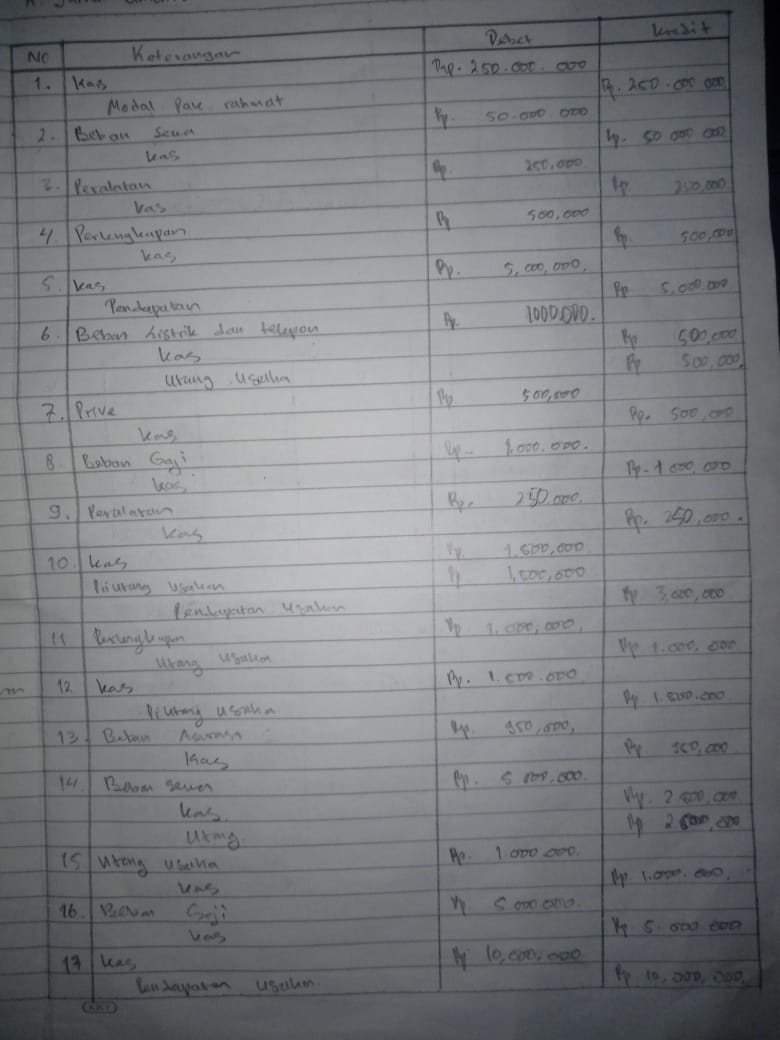 No Keterangan Debet Kredit
1. Kas Rp. 250.000.000
Modal Pak rahmat Rp. 250.000.000
2. Beban Sewa Rp. 50.000.000
Kas Rp. 50.000.000
3. Peralatan Rp. 250,000
Kas Rp. 250,000
4. Perlengkapan Rp 500,000
Kas Rp 500,000
5. Kas Rp. 5,000,000,
Pendapatan Rp 5,000.000
6. Beban Listrik dan telepon Rp. 1000.000.
Kas Rp 500,000
Utang Usaha Rp 500,000.
7. Prive Rp 500,000
Kas Rp. 500,000
8 Beban Gaji Rp. 1.000.000.
Kas Rp. 1 000,000
9. Peralatan Rp. 250.000.
Kas Rp. 250,000.
10. Kas Rp. 1.500,000
Piutang Usaha Rp 1,500,000
Pendapatan Usaha Rp 3,000,000
11 Perlengkapan Rp 1,000,000,
Utang Usaha Rp 1.000.000
12 Kas Rp. 1.500.000
Piutang Usaha Rp 1.500.000
13. Beban Asuransi Rp. 350,000,
Kas Rp 350,000
14. Beban Sewa Rp. 5 000,000.
Kas Rp. 2 500,000
Utang Rp 2 500,000
15 Utang Usaha Rp. 1.000.000.
Kas Rp 1.000.000.
16. Beban Gaji Rp 5 000.000.
Kas Rp 5.000 000
17 Kas Rp 10,000,000
Pendapatan Usaha Rp 10,000,000.